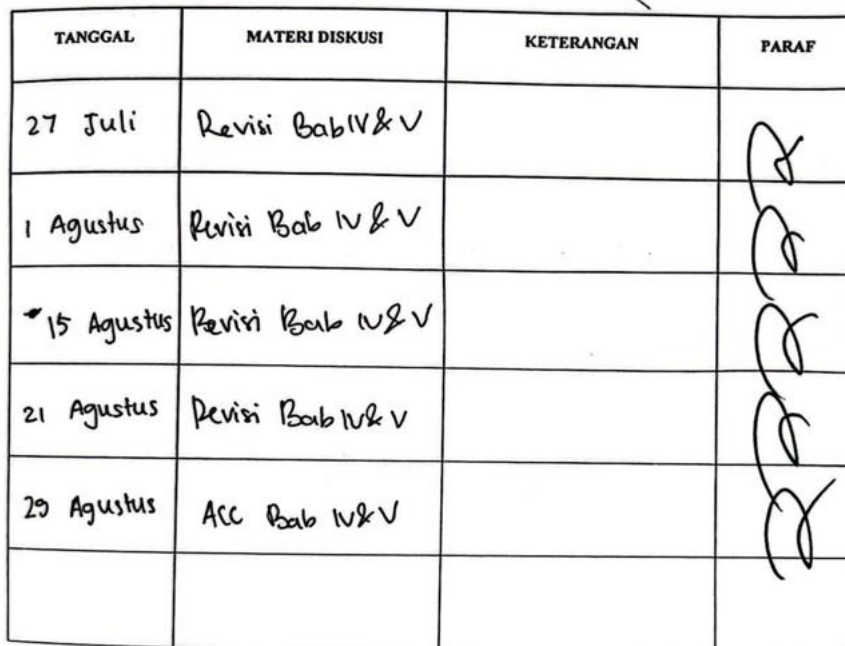 TANGGAL MATERI DISKUSI KETERANGAN PARAF
27 Juli Revisi Bab IV & V
1 Agustus Revisi Bab IV & V
15 Agustus Revisi Bab IV & V
21 Agustus Revisi Bab IV & V
29 Agustus ACC Bab IV & V